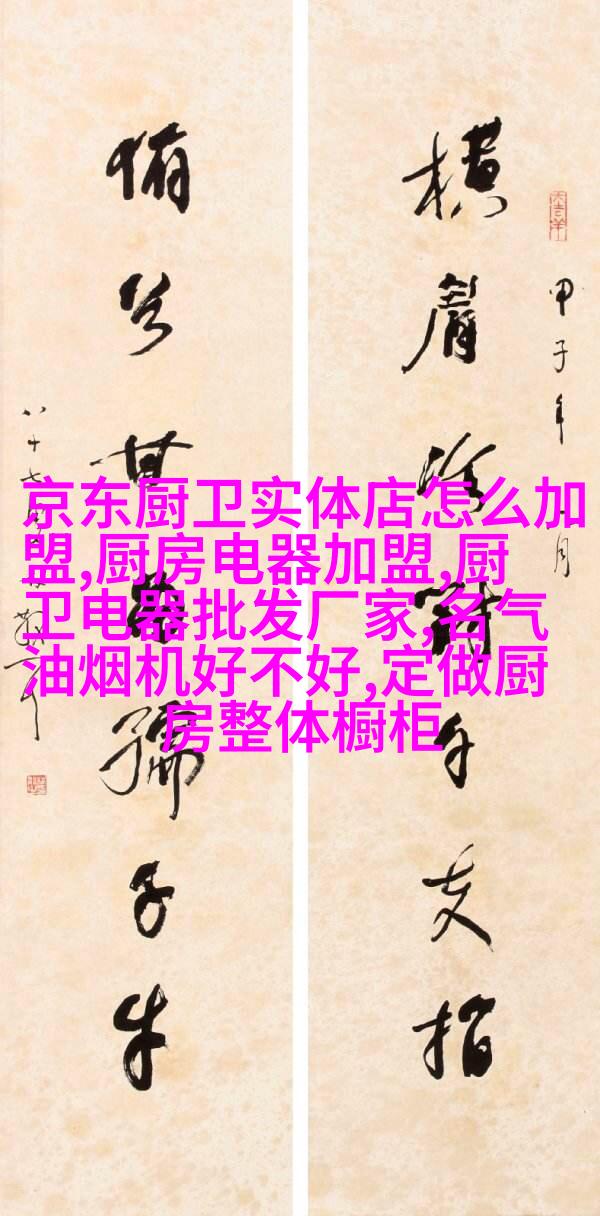 京东厨卫实体店怎么加
盟,厨房电器加盟,厨
卫电器批发厂家,名气
油烟机好不好,定做厨
房整体橱柜
甲子年
横眉冷對千夫指
俯首甘為孺子牛
八十七